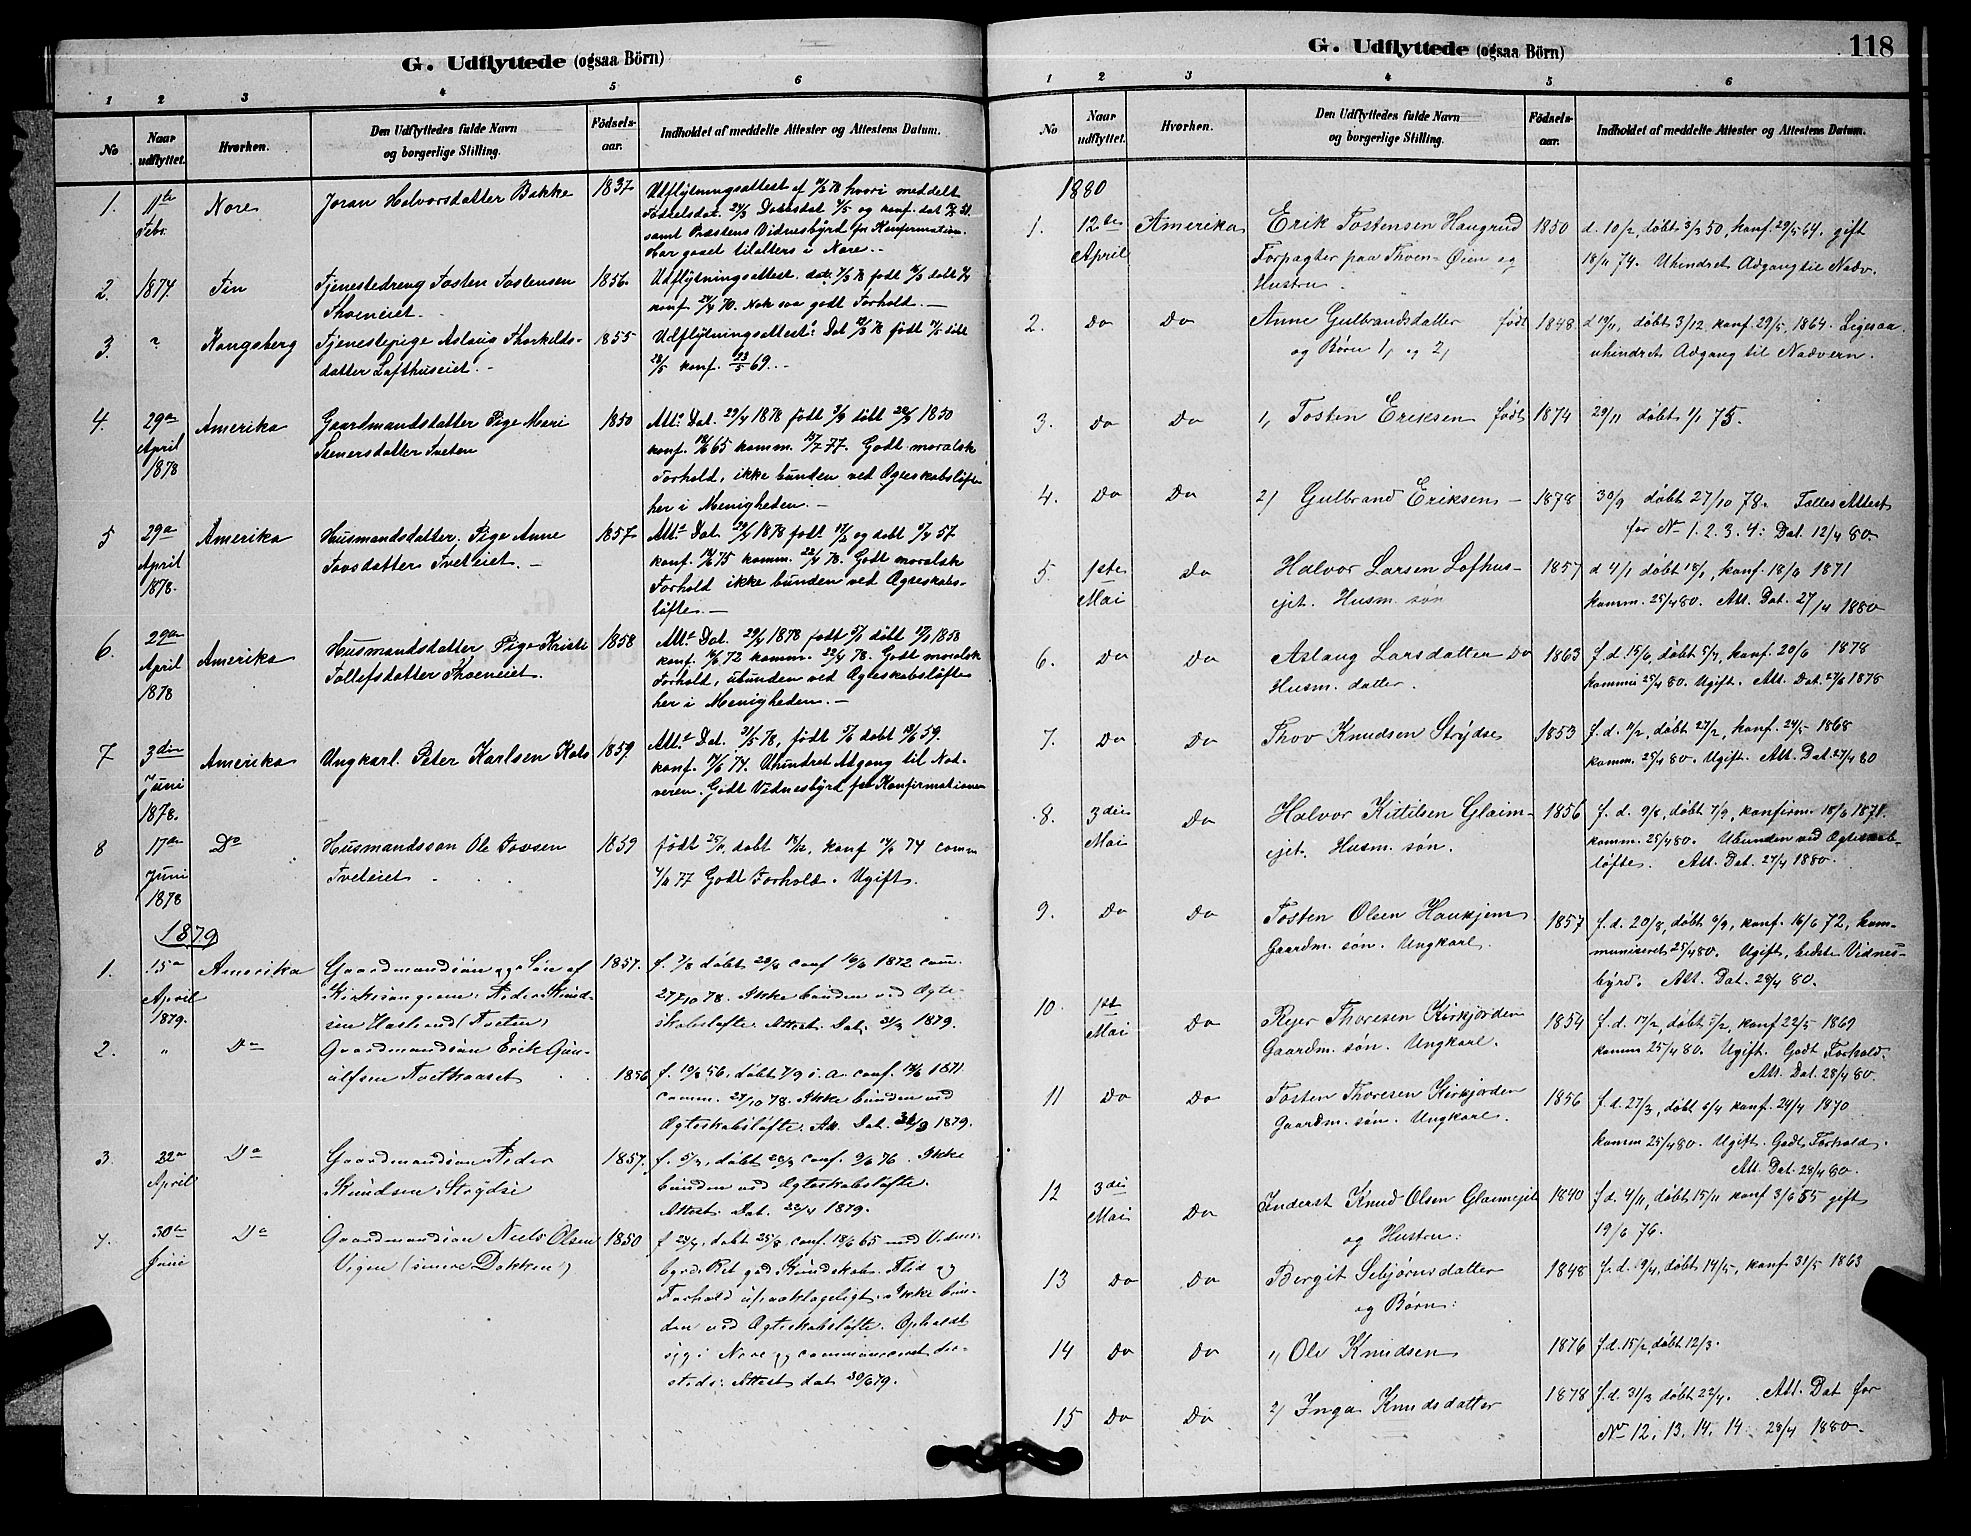 G. Udflyttede (ogsaa Börn)
1 2 3 4 5 6
No
Naar udflyttet.
Hvorhen.
Den Udflyttedes fulde Navn
og borgerlige Stilling.
Födsels-
aar.
Indholdet af meddelte Attester og Attestens Datum.
1. 11te Febr. Nore Joran Halvorsdatter Bakke 1837
Udflytningsattest af hvori meddelt
samt Præstens Vidnesbyrd for Konfirmation.
Har gaaet tilalters i Nore.
2. 1874. Tin Tjenestedreng Tosten Tostensen 1856.
Thoeneiet.
Nok saa godt Forhold.
3. Kongsberg Tjenestepige Aslaug Thorkilds- 1855
datter Lofthuseiet.
konf. 23/5 69.
4. 29de April 1878 Amerika Gaardmandsdatter Pige Mari 1850
Steinersdatter Tveten
Att. Dat. 29/4 1878 født
Godt moralsk
Forhold, ikke bunden ved Ægteskabsløfte
her i Menigheden.
5 29de April 1878. Amerika Husmandsdatter. Pige Anne 1857
Tovsdatter Tveteiet.
Att. Dat. 29/4 1878
Godt moralsk
Forhold ikke bunden ved Ægteskabs-
løfte.
6. 29de April 1878 Amerika Husmandsdatter Pige Kristi 1858
Tollefsdatter Thoeneiet.
Att. Dat. 29/4 1878
komm. 22/4 78. Godt moralsk
Forhold, ubunden ved Ægteskabsløfte
her i Menigheden.
7 3die Juni 1878. Amerika Ungkarl. Peter Karlsen Kols 1859.
Att. Dat. 31/5 78,
Uhindret Adgang til Nad-
veren. Godt Vidnesbyrd for Konfirmationen
8 17de Juni 1878 Do Husmandssøn Ole Tovsen 1859
Tveteiet.
Godt Forhold. Ugift.
1879
1. 15de April 1879. Amerika Gaardmandsøn og Søn af 1857.
Kirkesangeren: Peder Knud-
sen Hasland (Tveten)
f. 7/8 døbt 20/8 conf 16/6 1872 com.
27/10 78. Ikke bunden ved Ægte-
skabsløfte. Attest. Dat. 31/3 1879.
2. " Do Gaardmandsøn Erik Gun-
ulfsen Tvethaaset 1856
f. 19/8 56, døbt 7/9 s. a. conf. 18/6 1871
comm. 27/10 78. Ikke bunden ved
Ægteskabsløfte. Att. Dat. 31/3 1879.
3. 22de April Do Gaardmandsøn Peder 1857.
Knudsen Strydse
f. 5/3, døbt 28/3 conf. Ikke
bunden ved Ægteskabsløfte.
Attest. Dat. 22/4 1879.
4. 30te Juni Do Gaardmandsøn Niels Olsen 1850
Vigen (senere Dokken)
døbt 25/8, conf. 18/6 65 med Vidnes-
byrd: Ret god Kundskab. Flid og
Forhold upaaklageligt. Ikke bun-
den ved Ægteskabsløfte. Opholdt
sig i Nore og communiceret der-
steds. Attest dat 30/6 79.
G. Udflyttede (ogsaa Börn)
118
1 2 3 4 5 6
No
Naar udflyttet.
Hvorhen.
Den Udflyttedes fulde Navn
og borgerlige Stilling.
Födsels-
aar.
Indholdet af meddelte Attester og Attestens Datum.
1880
1. 12te April Amerika Erik Tostensen Haugrud 1850
Forpagter paa Thoen-Øien og
Hustru.
d. 10/2, døbt 3/3 50, konf. 29/5 64, gift
18/11 74. Uhindret Adgang til Nadv.
2. Do Do Anne Gulbrandsdatter født 1848
og Børn 1, og 2,
d 19/11, døbt 3/12, konf. 29/5, 1864. Ligesaa
uhindret Adgang til Nadvern.
3. Do Do 1, Tosten Eriksen født 1874 29/11 døbt 1/1 75.
4. Do Do 2) Gulbrand Eriksen 1878 30/9 døbt 27/10 78. Fælles Attest
for No 1. 2. 3. 4: Dat. 12/4 80.
5. 1ste Mai Do Halvor Larsen Lofhus- 1857
ejet. Husm. søn
d 4/1 døbt 18/1, konf. 18/6 1871
komm. 25/4 80. Att. Dat. 27/4 1880
6. Do Do Aslaug Larsdatter Do 1863
Husm. datter.
f. d. 15/6, døbt 5/7, konf. 20/6 1878
kommu 25/4 80. Ugift. Att. Dat. 27/6 1878
7. Do Do Thov Knudsen Strydse 1853
f. d. 11/2, døbt 27/2, konf. 24/5 1868
komm. 25/4 80. Ugift. Att. Dat. 27/4 80
8. 3die Mai Do Halvor Kittilsen Glaim- 1856
ejet. Husm. søn.
f. d. 9/8, døbt 7/9, konfirm. 18/6 1871.
komm. 25/4 80. Ubunden ved Ægteskabs-
løfte. Att. Dat. 27/4 1880.
9. Do Do Tosten Olsen Haukjem 1857
Gaardm. søn. Ungkarl.
f. d. 20/8, døbt 6/9, konf. 16/6 72, kom-
muniseret 25/4 80. Ugift, bedste Vidnes-
byrd. Att. Dat. 28/4 80.
10. 1ste Mai Do Rejer Thoresen Kirkjorden 1854
Gaardm. søn. Ungkarl.
f. d. 17/2, døbt 5/2, konf 22/5 1869
komm 25/4 80. Ugift. Godt Forhold.
Att. Dat. 28/4 80.
11 Do Do Tosten Thoresen Kirkjorden 1856
Gaardm. søn. Ungkarl.
f. d. 27/3, døbt 6/4 konf. 24/4 1870
komm 25/4 80. Ugift. Godt Forhold.
Att. Dat. 28/4 80.
12 3die Mai Do Inderst Knud Olsen Glaimejet 1840
og Hustru:
f. d. 4/11, døbt 15/11 konf 3/6 55 gift
19/6 76.
13 Do Do Bergit Sebjørnsdatter 1848 f. d. 9/4, døbt 14/5, konf. 31/5 1863
og Børn:
14 Do Do 1, Ole Knudsen 1876 f. d. 15/2, døbt 12/3.
15 Do Do 2, Inga Knudsdatter 1878 f. d. 31/3 døbt 22/4. Att. Dat for
No 12. 13. 14. 14. 28/4 1880.